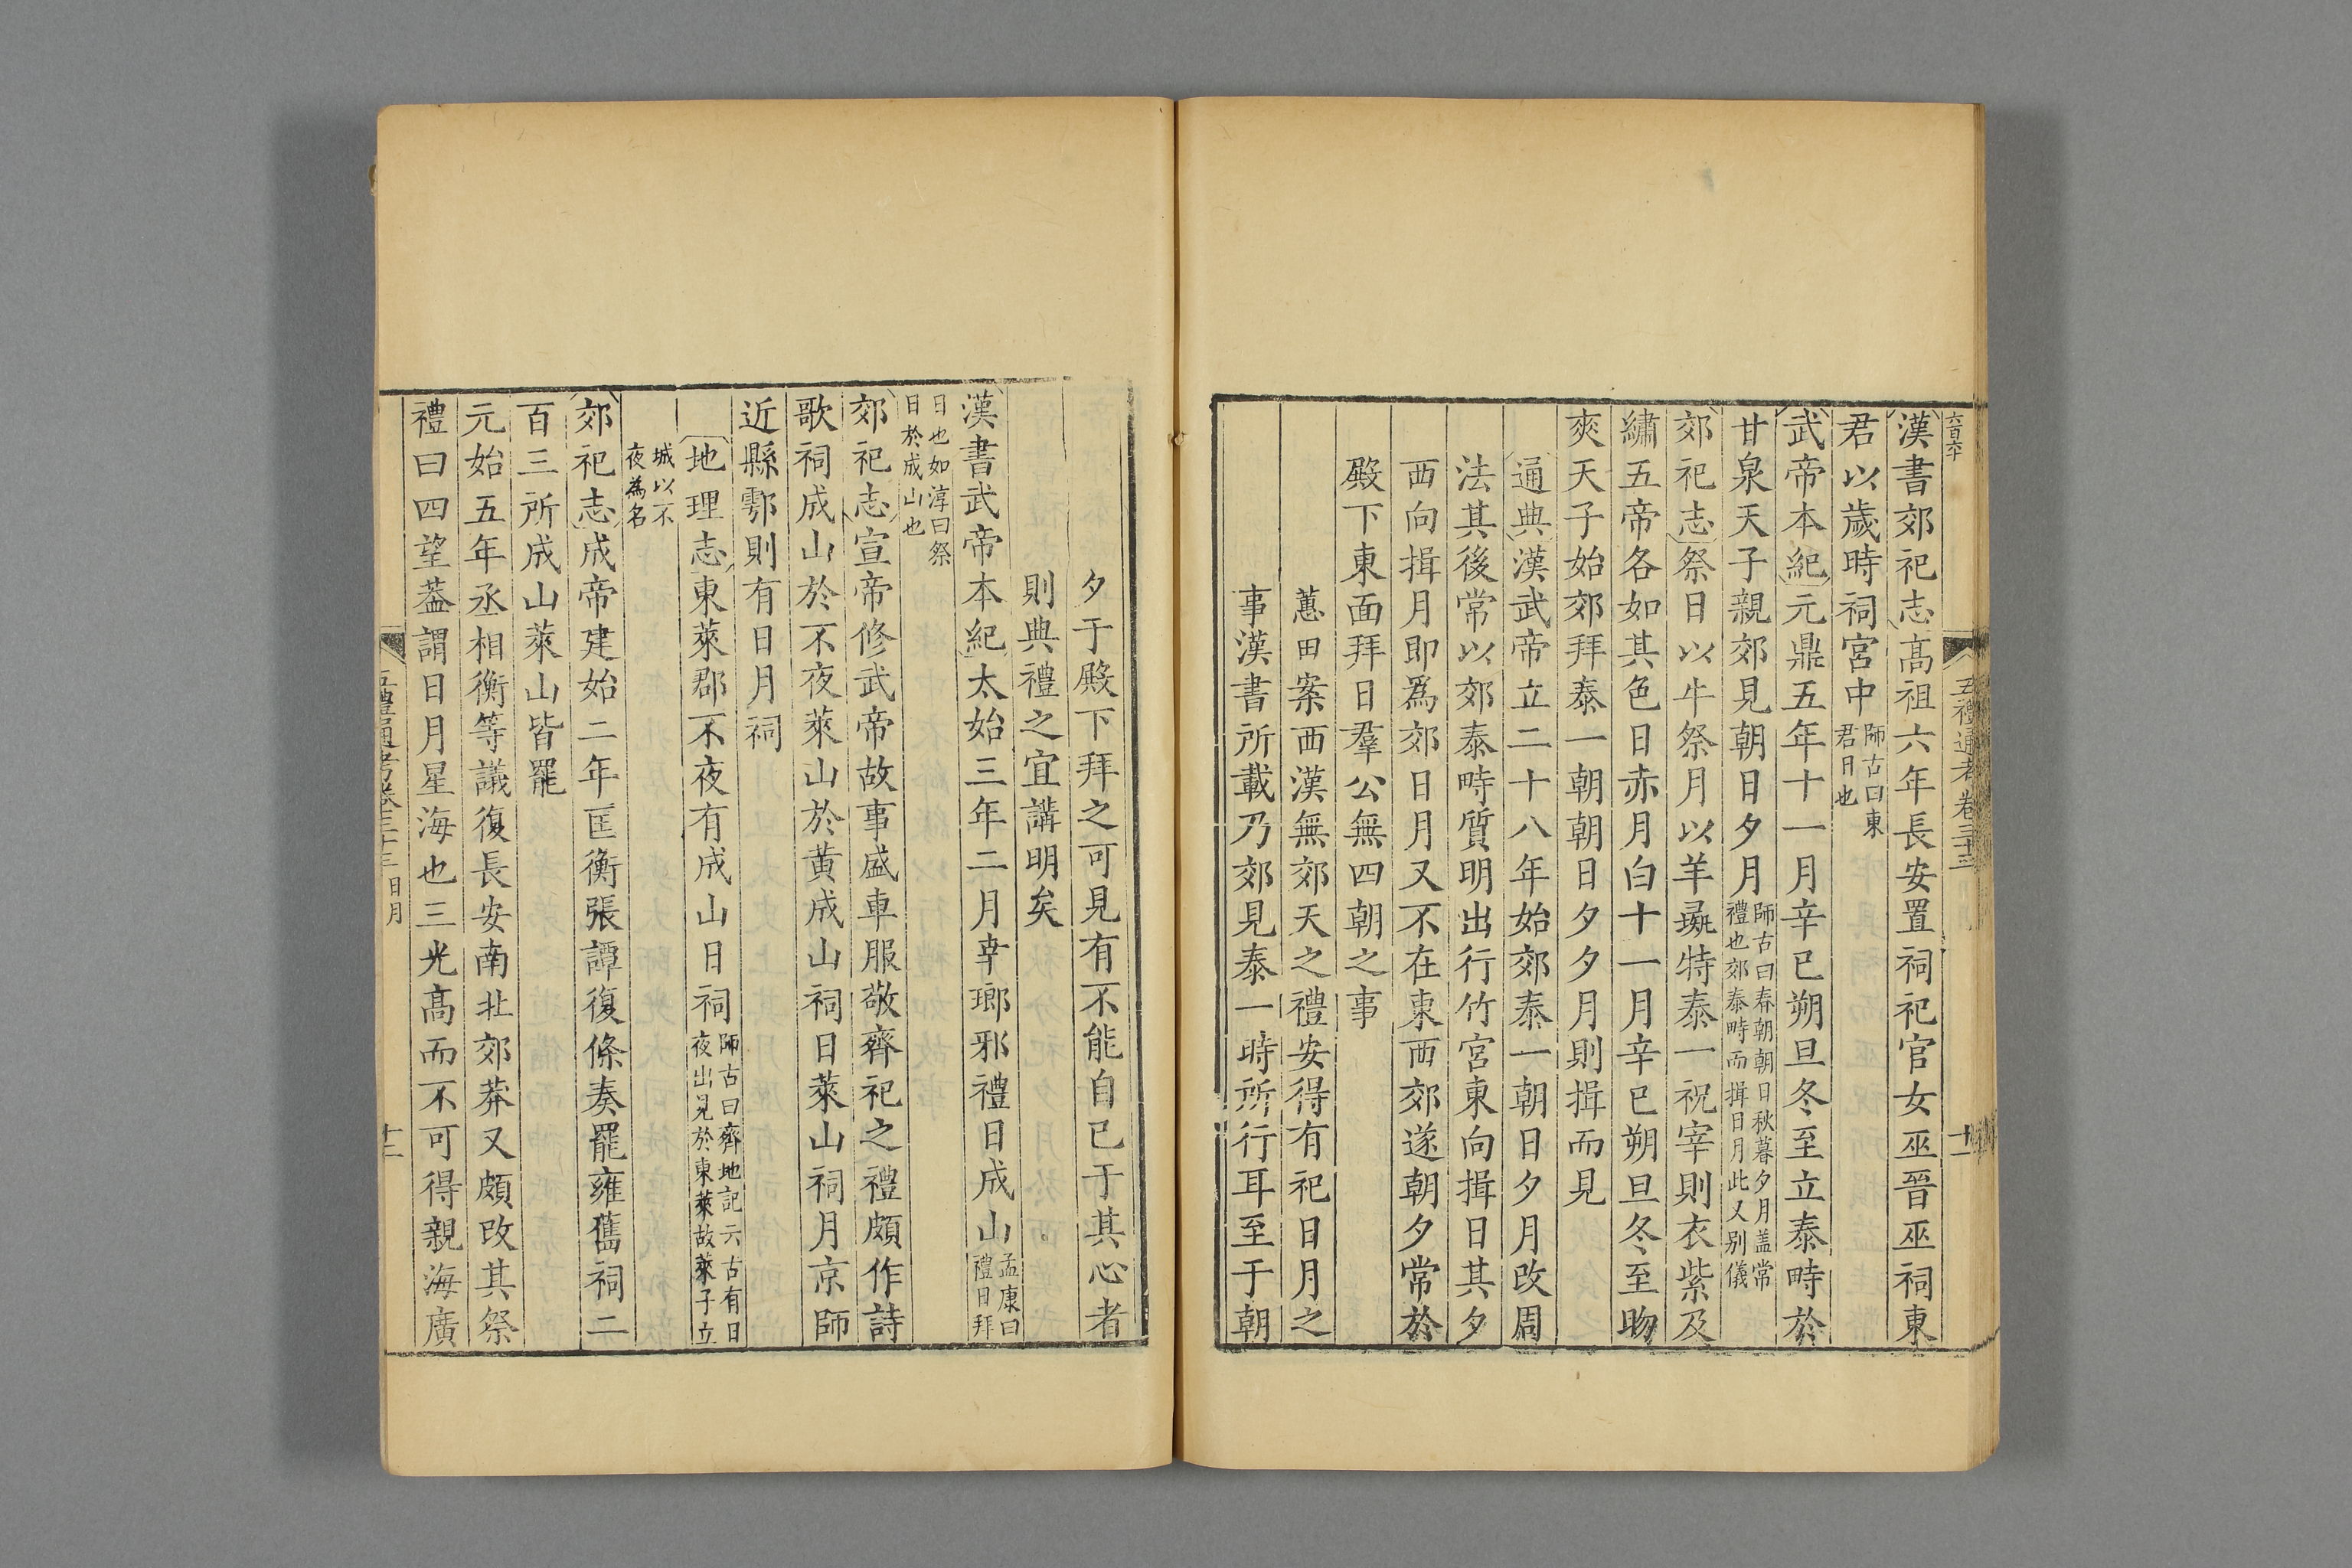 六百六十
五禮通考卷三十三
十一
漢書郊祀志高祖六年長安置祠祀官女巫晉巫祠東
君以歲時祠宮中師古曰東君日也
武帝本紀元鼎五年十一月辛巳朔旦冬至立泰畤於
甘泉天子親郊見朝日夕月師古曰春朝朝日秋暮夕月盖常禮也郊泰畤而揖日月此又别儀
郊祀志祭日以牛祭月以羊彘特泰一祝宰則衣紫及
繡五帝各如其色日赤月白十一月辛巳朔旦冬至昒
爽天子始郊拜泰一朝朝日夕夕月則揖而見
通典漢武帝立二十八年始郊泰一朝日夕月改周
法其後常以郊泰畤質明出行竹宮東向揖日其夕
西向揖月即爲郊日月又不在東西郊遂朝夕常於
殿下東面拜日羣公無四朝之事
蕙田案西漢無郊天之禮安得有祀日月之
事漢書所載乃郊見泰一時所行耳至于朝
夕于殿下拜之可見有不能自已于其心者
則典禮之宜講明矣
漢書武帝本紀太始三年二月幸瑯邪禮日成山孟康曰禮日拜
日也如淳曰祭日於成山也
郊祀志宣帝修武帝故事盛車服敬齊祀之禮頗作詩
歌祠成山於不夜萊山於黄成山祠日萊山祠月京師
近縣鄠則有日月祠
地理志東萊郡不夜有成山日祠師古曰齊地記云古有日夜出見於東萊故萊子立
城以不夜為名
郊祀志成帝建始二年匡衡張譚復條奏罷雍舊祠二
百三所成山萊山皆罷
元始五年丞相衡等議復長安南北郊莽又頗改其祭
禮曰四望葢謂日月星海也三光高而不可得親海廣
五禮通考卷三十三 日月
十二